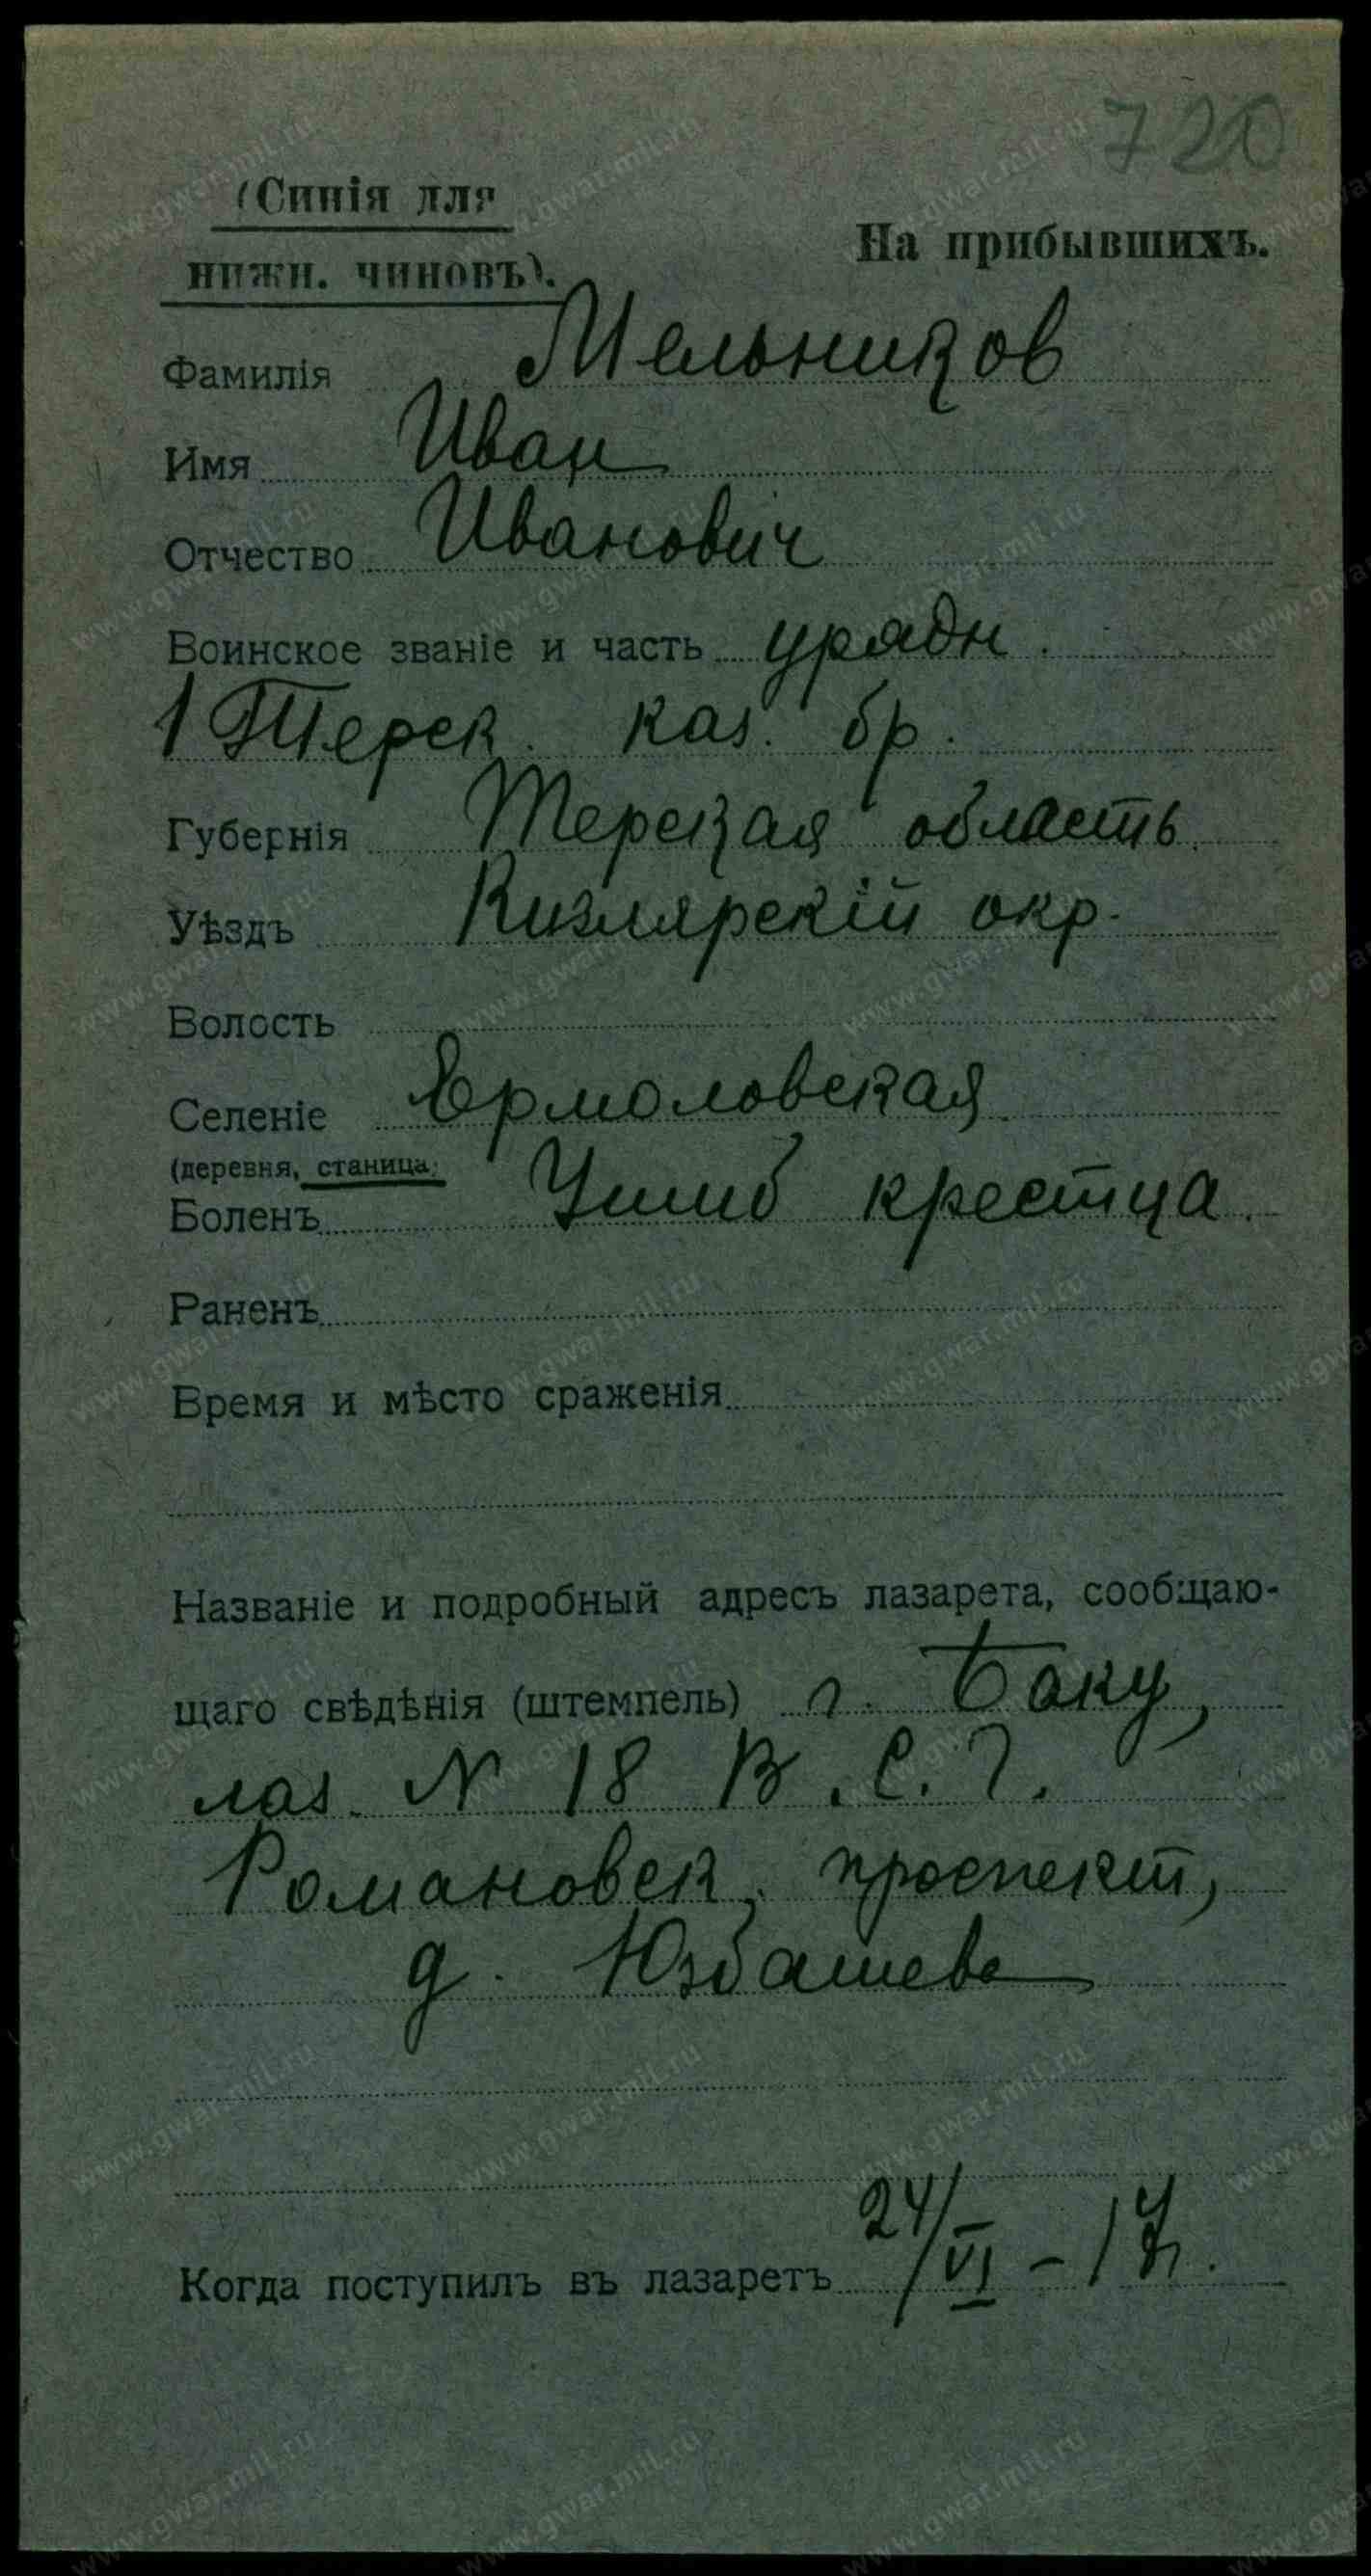 720
(Синія для
нижн. чиновъ).
На прибывшихъ.
Фамилія Мельников
Имя Иван
Отчество Иванович
Воинское званіе и часть урядн.
1 Терск. каз. бр.
Губернія Терская область
Уѣздъ Кизлярскій окр.
Волость
Селеніе Ермоловская
(деревня, станица)
Боленъ Ушиб крестца
Раненъ
Время и мѣсто сраженія
Названіе и подробный адресъ лазарета, сообщаю-
щаго свѣдѣнія (штемпель) г. Баку,
лаз. N 18 В. С. Г.
Романовск. проспект,
д. Юзбашева
Когда поступилъ въ лазаретъ 24/VI - 17 г.
www.gwar.mil.ru